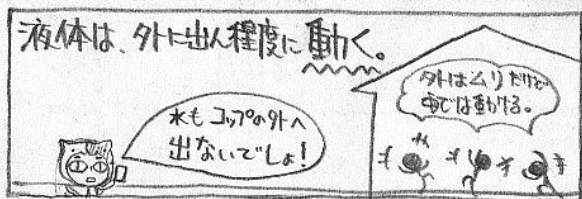 液体は、外に出ん程度に動く。
水もコップの外へ
出ないでしょ！
外はムリだけど
中では動ける。